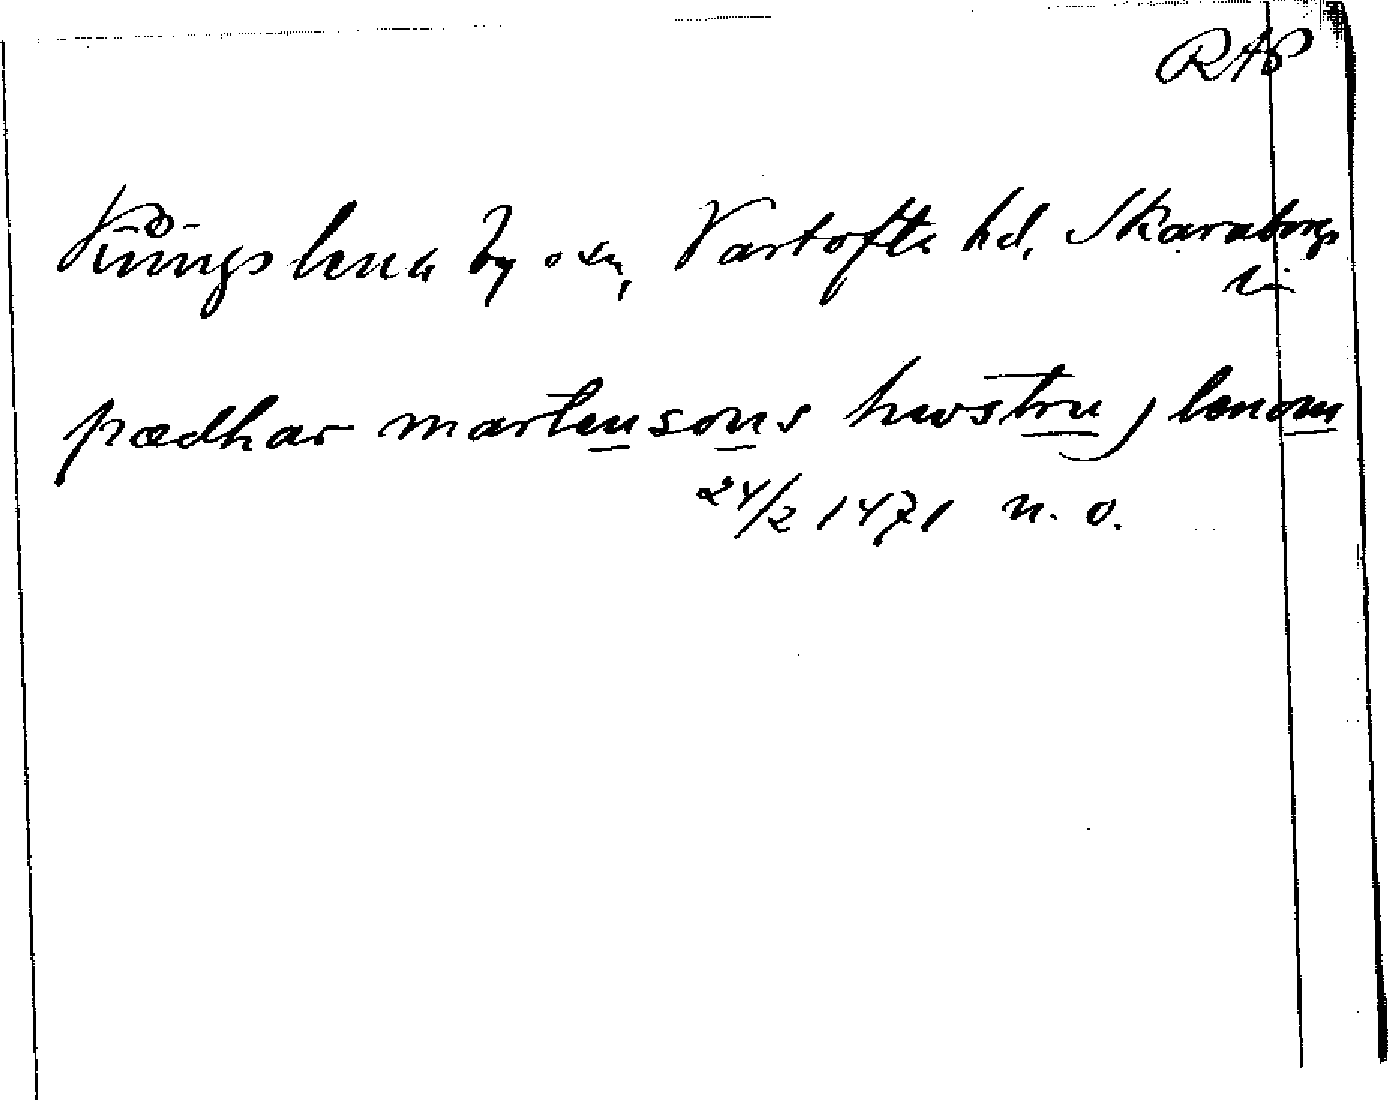 RAP
Kungslena by o sn, Vartofta hd, Skaraborgs
län
pædhar martensons hwstru j lenom
24/2 1471 n. o.